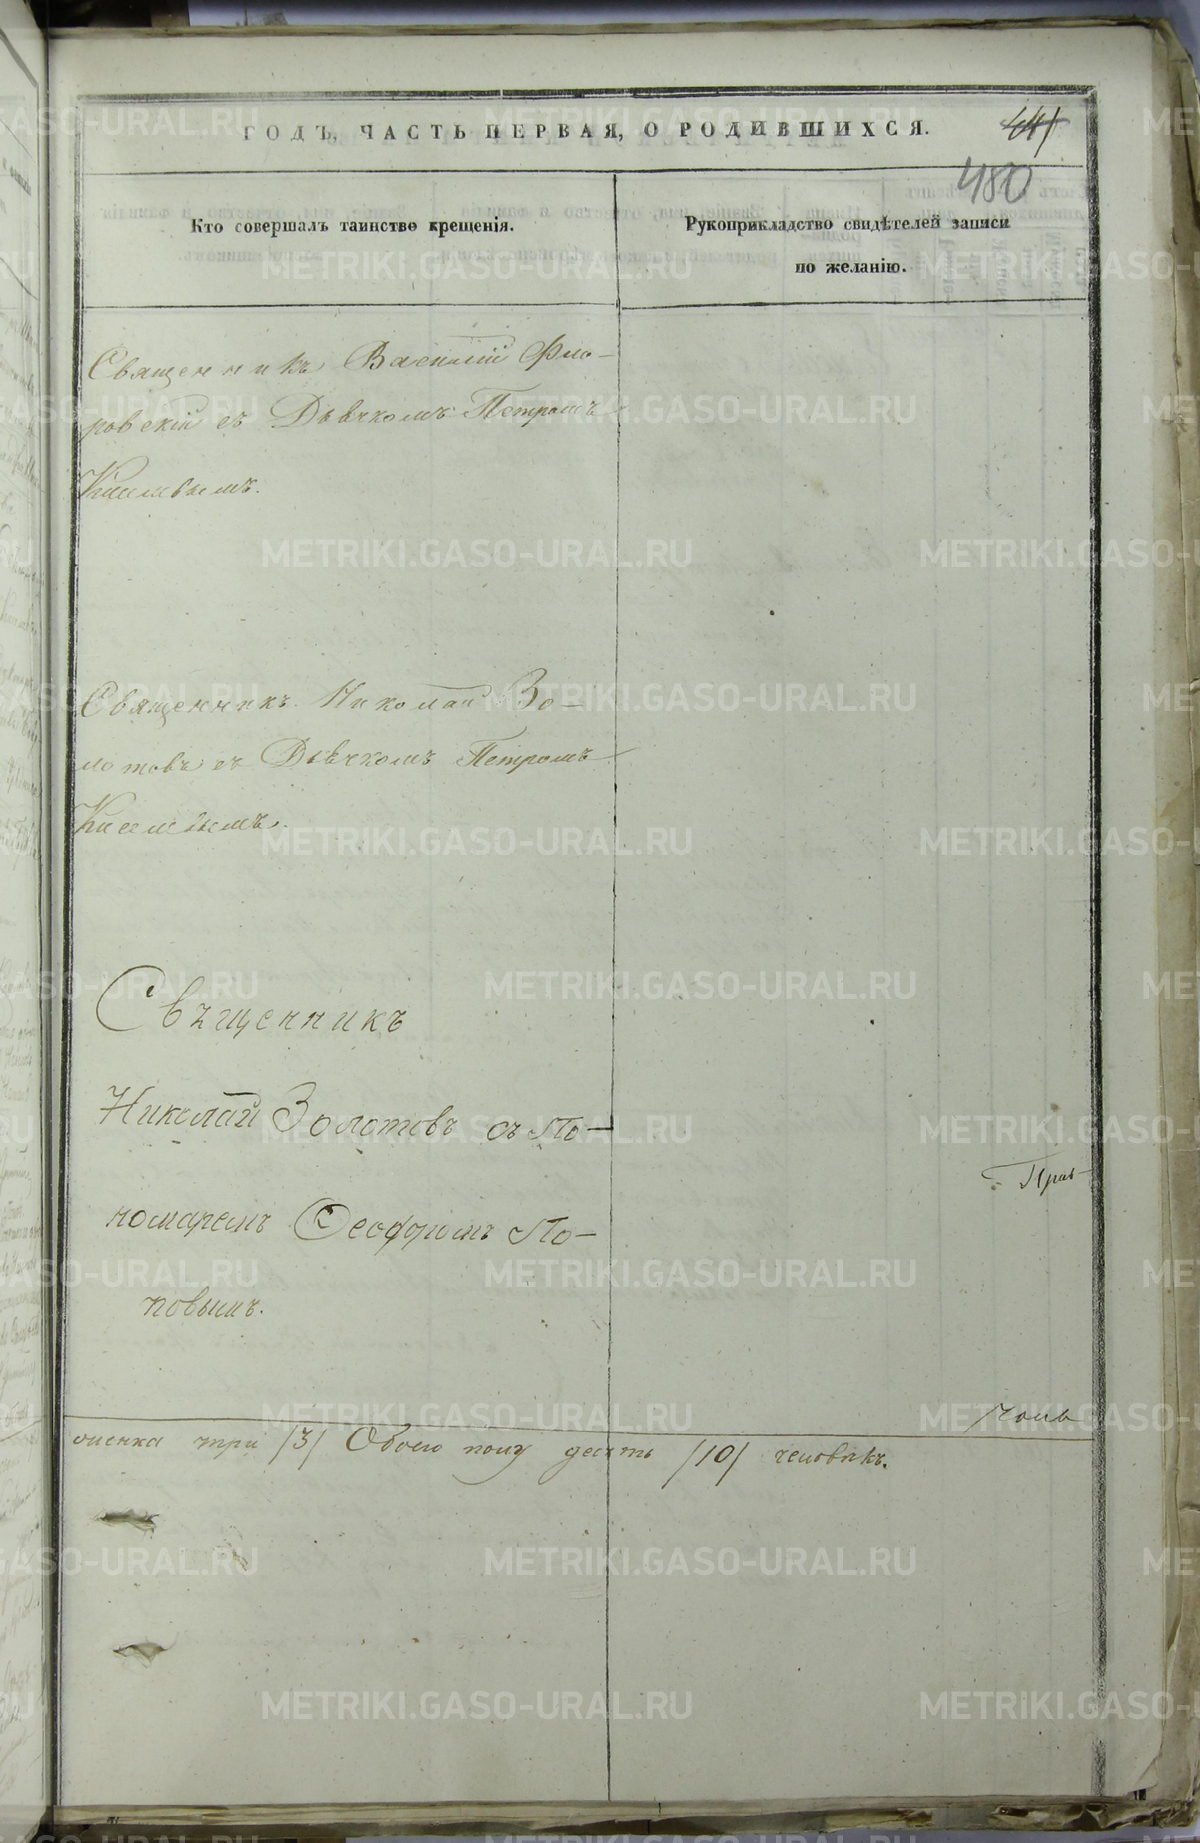 ГОДЪ, ЧАСТЬ ПЕРВАЯ, О РОДИВШИХСЯ.
480
Кто совершалъ таинство крещенія.
Рукоприкладство свидѣтелей записи
по желанію.
Священникъ Василій Фло-
ровскій съ Дьячкомъ Петромъ
Киселевымъ.
Священникъ Николай Зо-
лотовъ съ Дьячкомъ Петромъ
Киселевымъ.
Свѣщенникъ
Николай Золотовъ съ По-
номаремъ Ѳеодоромъ По-
повымъ.
три /3/ Обоего полу десять /10/ человѣкъ.
METRIKI.GASO-URAL.RU